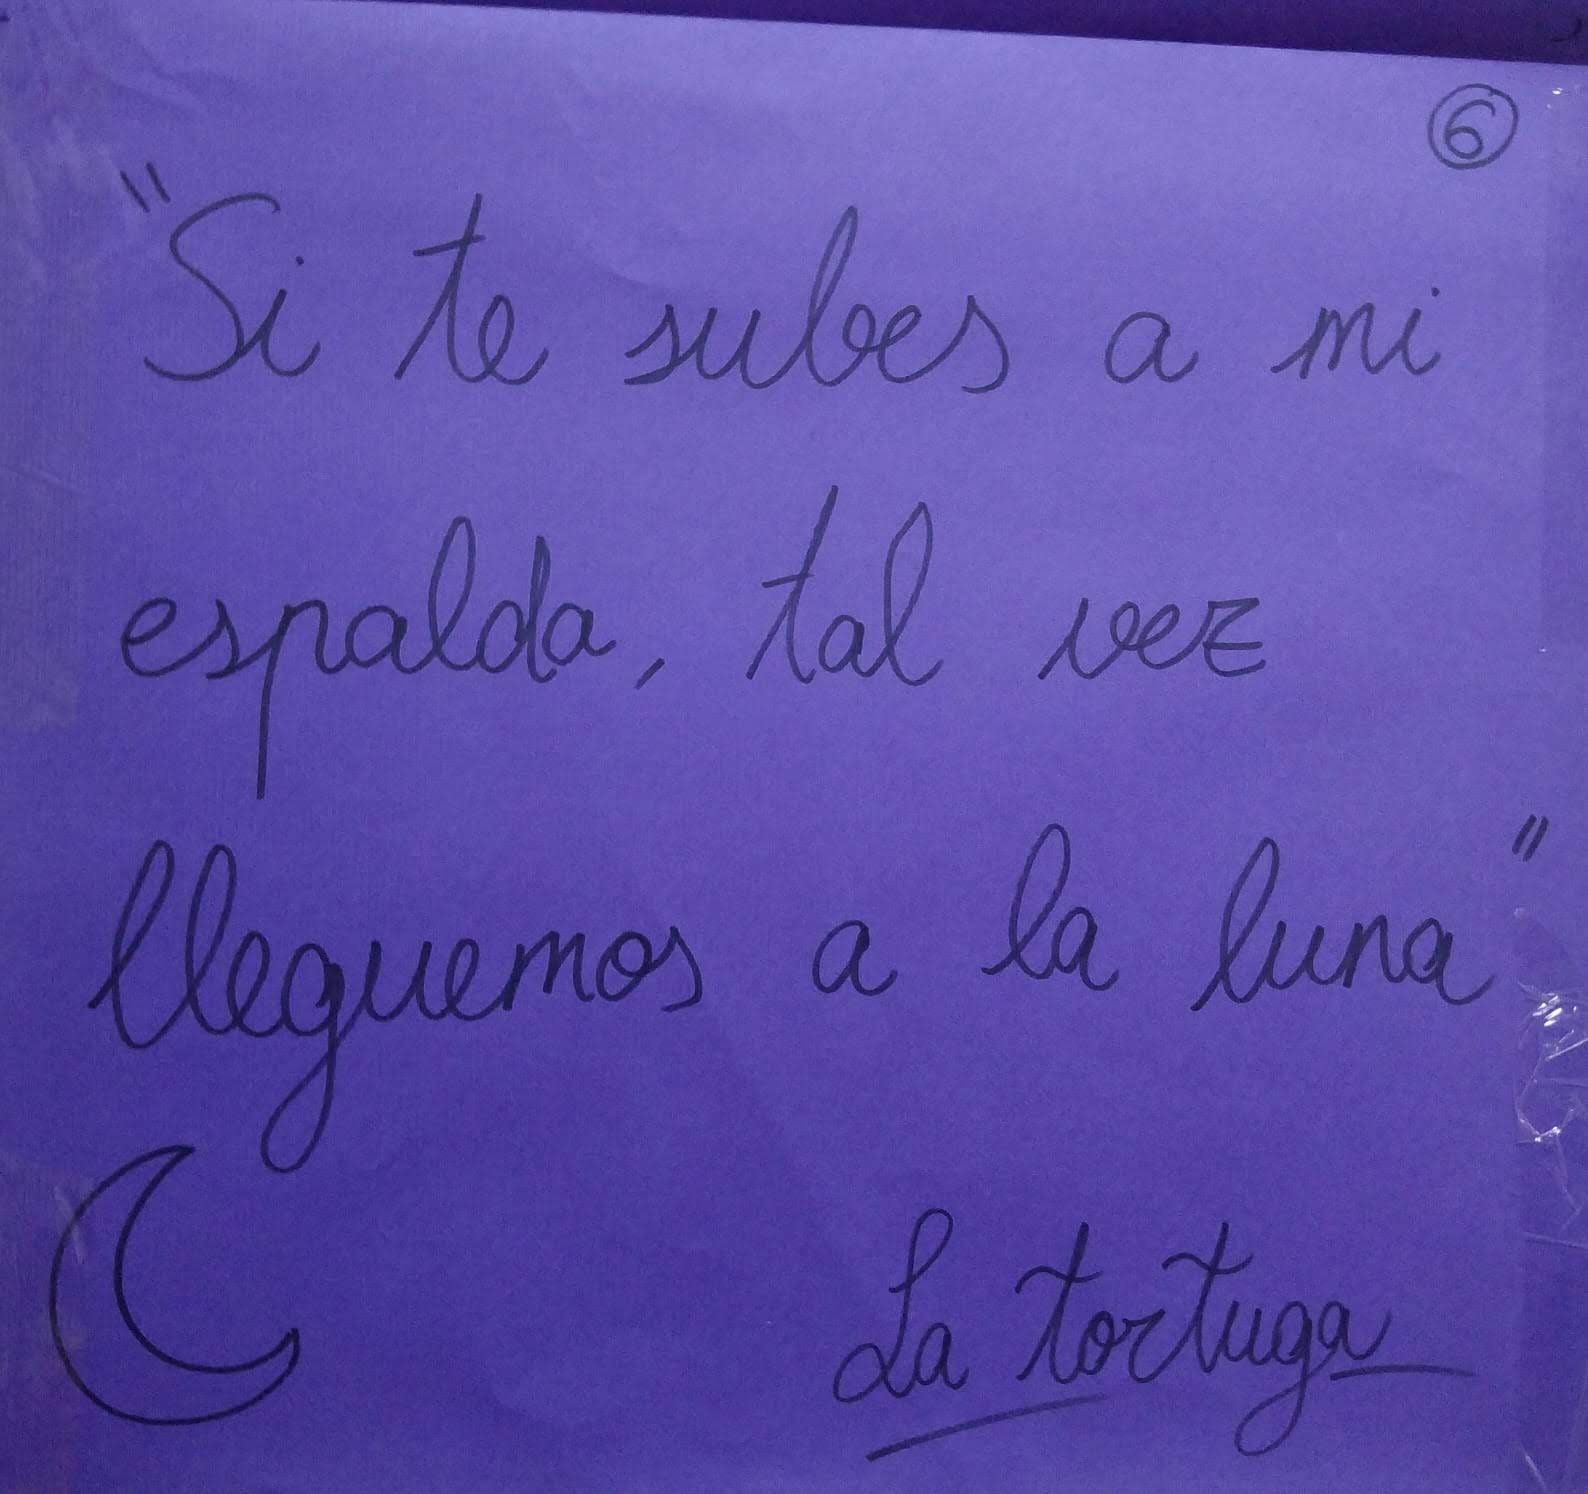 6
"Si te subes a mi
espalda, tal vez
lleguemos a la luna"
La tortuga